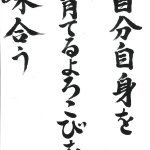 自分自身を
育てるよろこびを
味合う